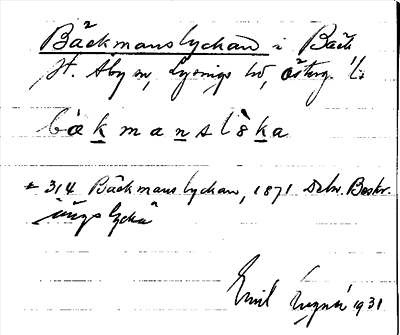 Bäckmanslyckan i Bäck
St. Åby sn, Lysings hd, Österg. l:
bäkmanslèka
314 Bäckmanslyckan, 1871 Dels. Beskr.
ängslycka
Emil 1931